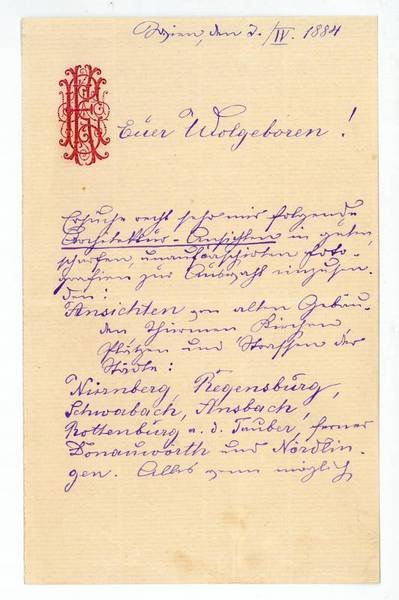 Wien, den 2./IV. 1884
Euer Wolgeboren!
Ersuche recht sehr mir folgende
Architektur-Ansichten in guten,
scharfen, unaufkaschirten Foto-
grafien zur Auswahl einzusen-
den:
Ansichten von alten Gebäu-
den Thürmen Kirchen,
Plätzen und Strassen der
Städte:
Nürnberg, Regensburg,
Schwabach, Ansbach,
Rottenburg a. d. Tauber, ferner
Donauwörth und Nördlin-
gen. Alles wenn möglich